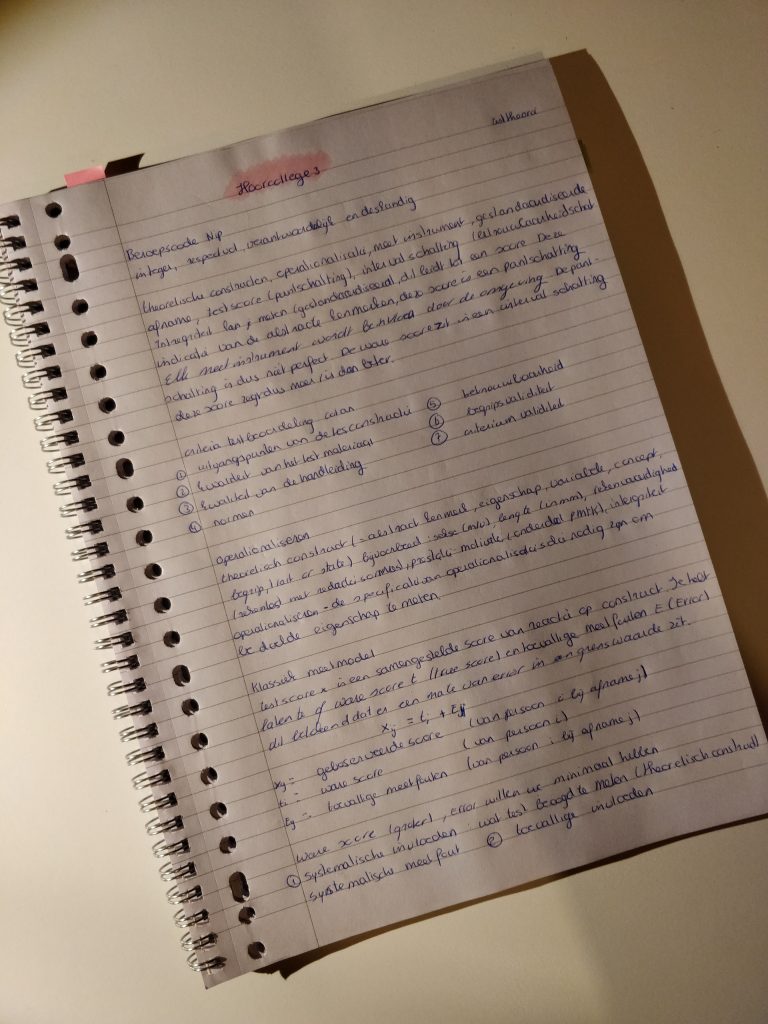 testtheorie
Hoorcollege 3
Beroepscode Nip
integer, respectvol, verantwoordelijk en deskundig
theoretische constructen, operationalisatie, meet instrument, gestandaardiseerde
afname, testscore (puntschatting), interval schatting
meten (gestandaardiseerd, dit leidt tot een score Deze
indicatie van de abstracte kenmerken, deze score is een puntschatting
Elk meetinstrument wordt door de omgeving De punt-
schatting is dus niet perfect De ware score zit in een interval schatting
deze score zegt dus meer / is dan beter.
criteria testbeoordeling cotan
① uitgangspunten van de testconstructie
② kwaliteit van het test materiaal
③ kwaliteit van de handleiding
④ normen
⑤ betrouwbaarheid
⑥ begripsvaliditeit
⑦ criterium validiteit
operationaliseren
theoretisch construct (= abstract kenmerk, eigenschap, variabele, concept,
begrip, trait or state) bijvoorbeeld: sekse (m/v), lengte (in mm), rekenvaardigheid
motivatie (onderdeel PMTK), integriteit
operationaliseren = de specificatie van operationalisaties die nodig zijn om
bedoelde eigenschap te meten.
Klassiek meetmodel
testscore x is een samengestelde score van reactie op construct. Je hebt
latente of ware score t (true score) en toevallige meetfouten E (Error)
dit betekend dat er een mate van error in een grenswaarde zit.
xij = ti + Eij
xij = geobserveerde score (van persoon i bij afname j)
ti = ware score (van persoon i)
Eij = toevallige meetfouten (van persoon i bij afname j)
ware score (groter), error willen we minimaal hebben
① systematische invloeden: wat test beoogd te meten (theoretisch construct)
systematisch meetfout ② toevallige invloeden